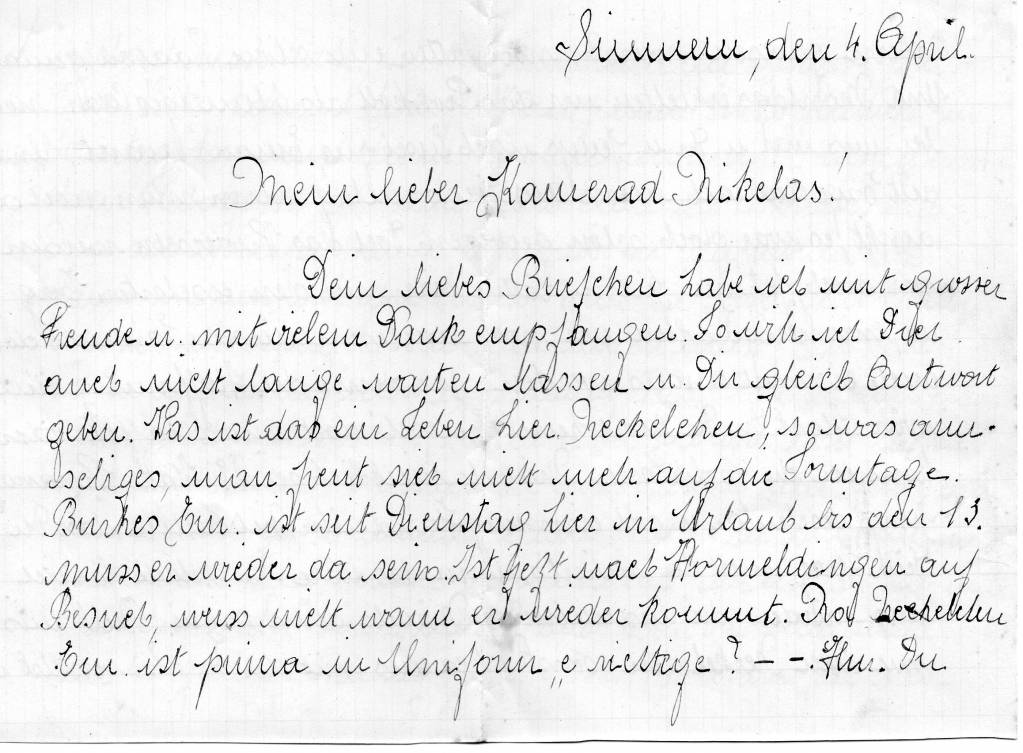 Simmern, den 4. April.
Mein lieber Kamerad Nikelas!
Dein liebes Briefchen habe ich mit grosser
Freude u. mit vielem Dank empfangen. So will ich Dich
auch nicht lange warten lassen u. Dir gleich Antwort
geben. Was ist das ein Leben hier Neckelchen, so was arm-
seliges, man freut sich nicht mehr auf die Sonntage.
Em. ist seit Dienstag hier in Urlaub bis den 13.
muss er wieder da sein. Ist jetzt nach Hormeldingen auf
Besuch, weiss nicht wann er wieder kommt. Neckelchen
Em. ist prima in Uniform, „e ? – –. Du